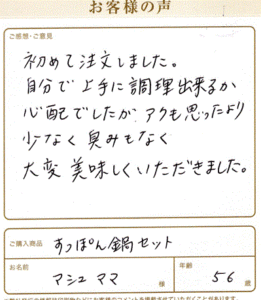 お客様の声
ご感想・ご意見
初めて注文しました。
自分で上手に調理出来るか
心配でしたが アクも思ったより
少なく 臭みもなく
大変 美味しくいただきました。
ご購入商品
すっぽん鍋セット
お名前
マシュ ママ 様
年齢
56 歳